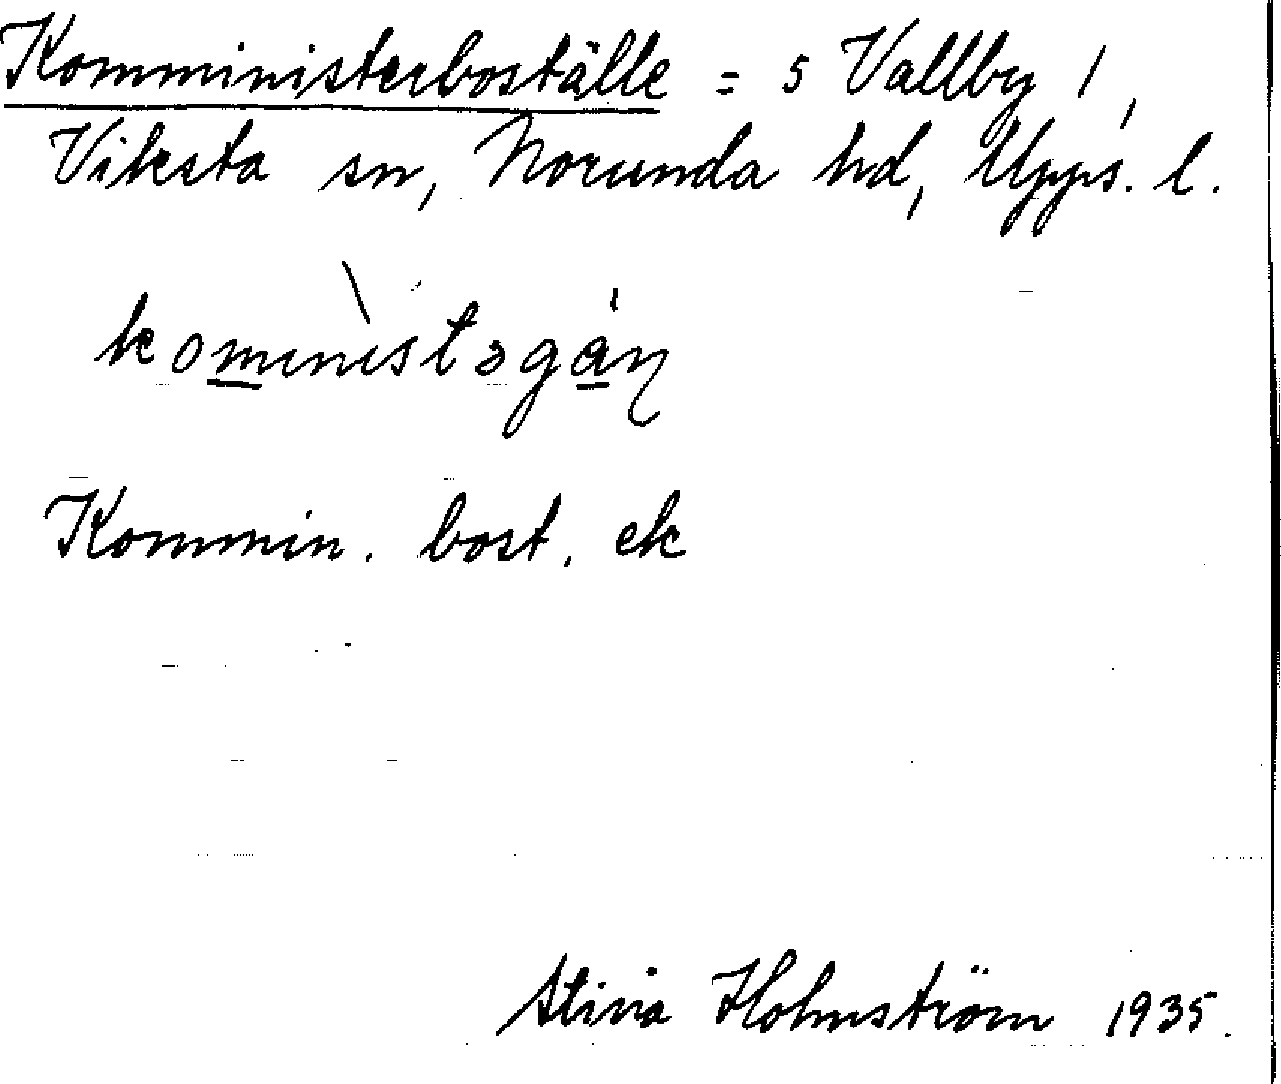 Komministerboställe = 5 Vallby 1,
Viksta sn, Norunda hd, Upps. l.
komìnistəgán
Kommin. bost. ek
Stina Holmström 1935.